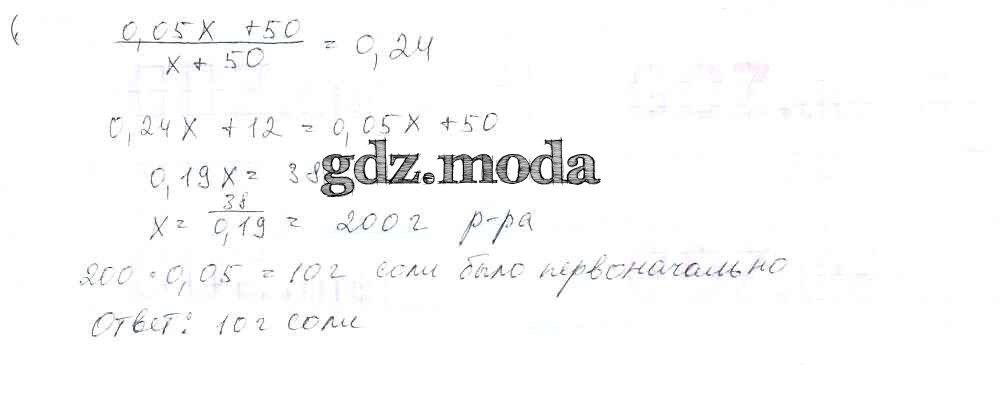 (
0,05x + 50
x + 50
= 0,24
0,24x + 12 = 0,05x + 50
0,19x = 38
gdz.moda
x = 38/0,19 = 200 г р-ра
200 · 0,05 = 10 г соли было первоначально
Ответ: 10 г соли